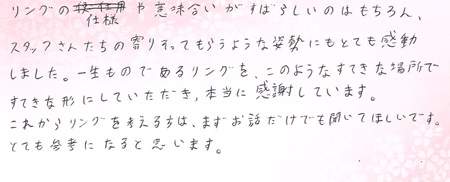 リングの仕様や意味合いがすばらしいのはもちろん、
スタッフさんたちの寄りそってもらうような姿勢にもとても感動
しました。一生ものであるリングを、このようなすてきな場所で
すてきな形にしていただき、本当に感謝しています。
これからリングを考える方は、まずお話だけでも聞いてほしいです。
とても参考になると思います。